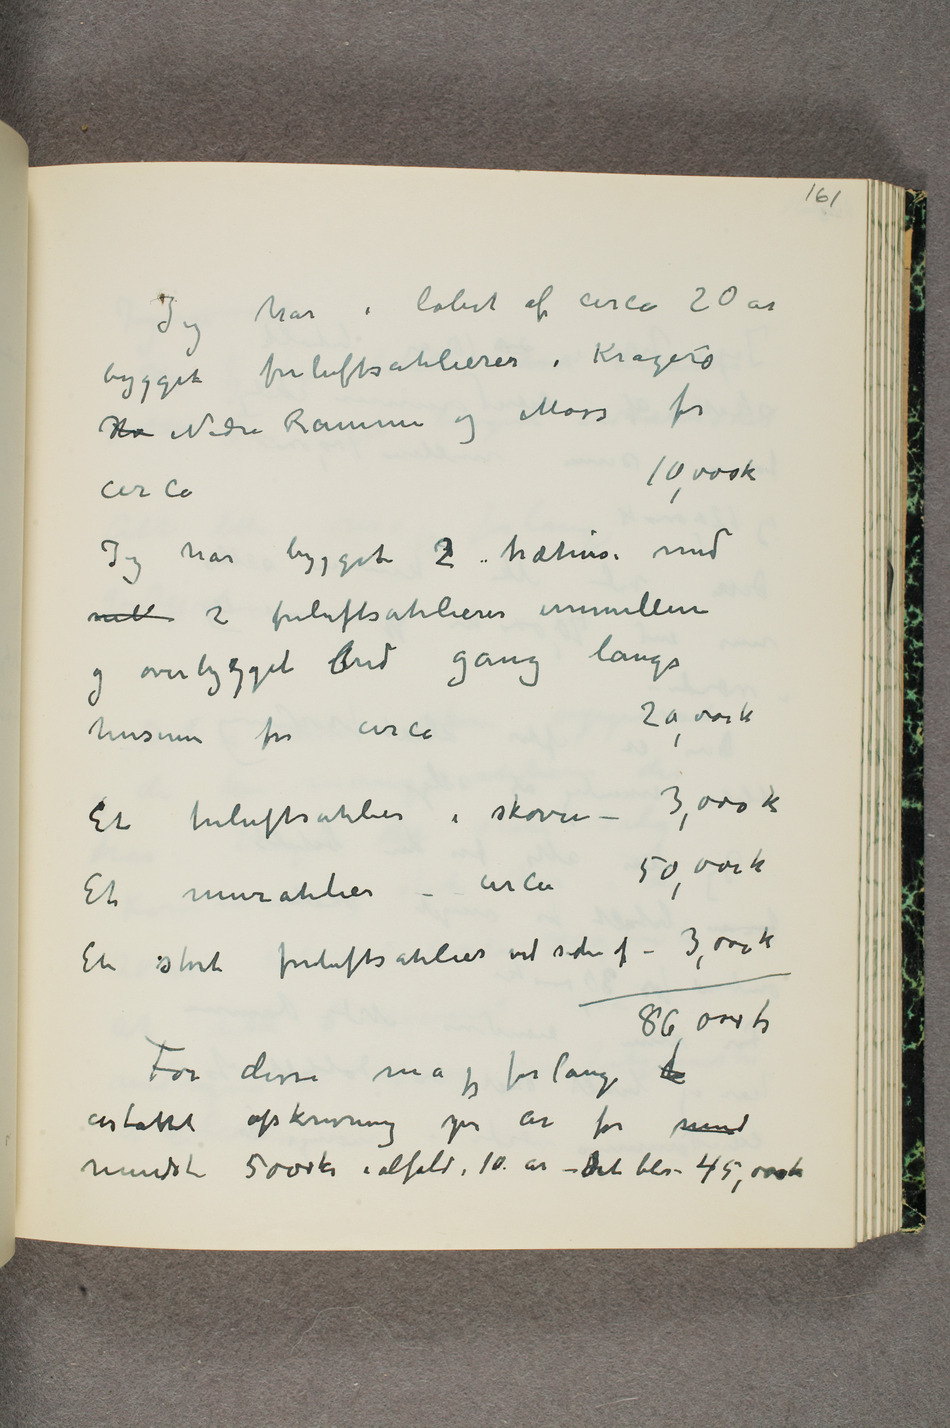 161
Jeg har i løbet af circa 20 år
bygget friluftsatelierer i Kragerø
Hv Nedre Ramme og Moss for
circa 10,000k
Jeg har bygget 2 træhuse med
mell 2 friluftsatelierer immellem
og overbygget bred gang langs
husene for circa 20,000k
Et friluftsatelier i skoven – 3,000k
Et muratelier – circa 50,000k
Et stort friluftsatelier ved siden af – 3,000k
86,000k
For disse må jeg forlange
erstattet afskrivning per år for mind
mindst 5000kr ialfald i 10 år – Det blir 45,000k